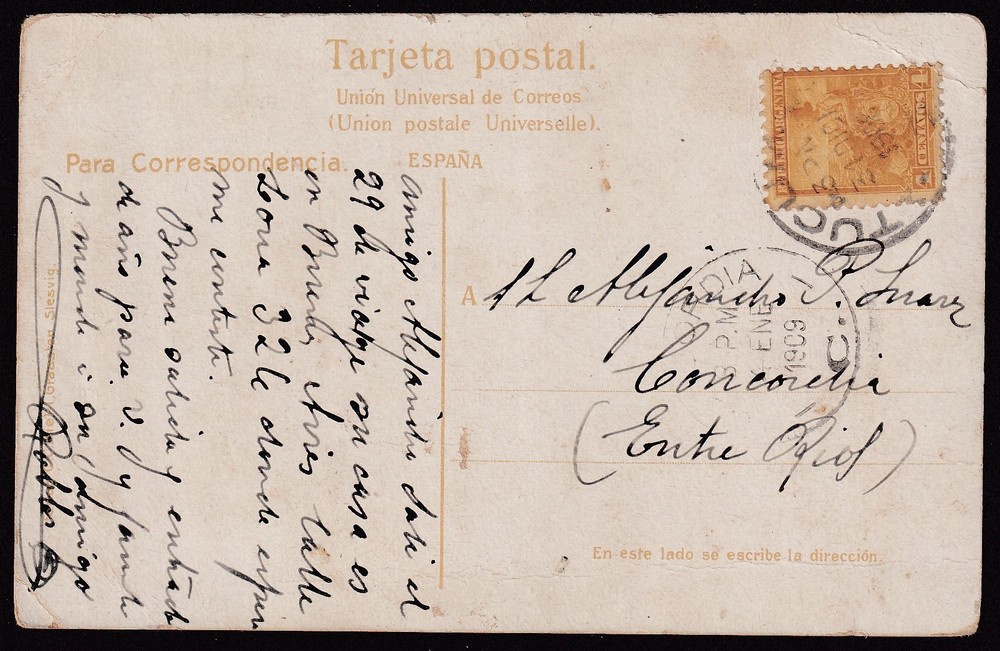 Tarjeta postal.
Unión Universal de Correos
(Union postale Universelle).
Para Correspondencia.
ESPAÑA
Amigo Alejandro Sali el
29 de viaje su casa es
en Buenos Aires Calle
324 donde espero
me conteste.
Buena salida y entrada
de año para V. y familia
y mande á su Amigo
Robles
A
Alejandro P. Suarez
Concordia
(Entre Rios)
En este lado se escribe la dirección.
REPUBLICA ARGENTINA
1 CENTAVO
TUC
8 P.M.
ENE
1909
C.
Slesvig.